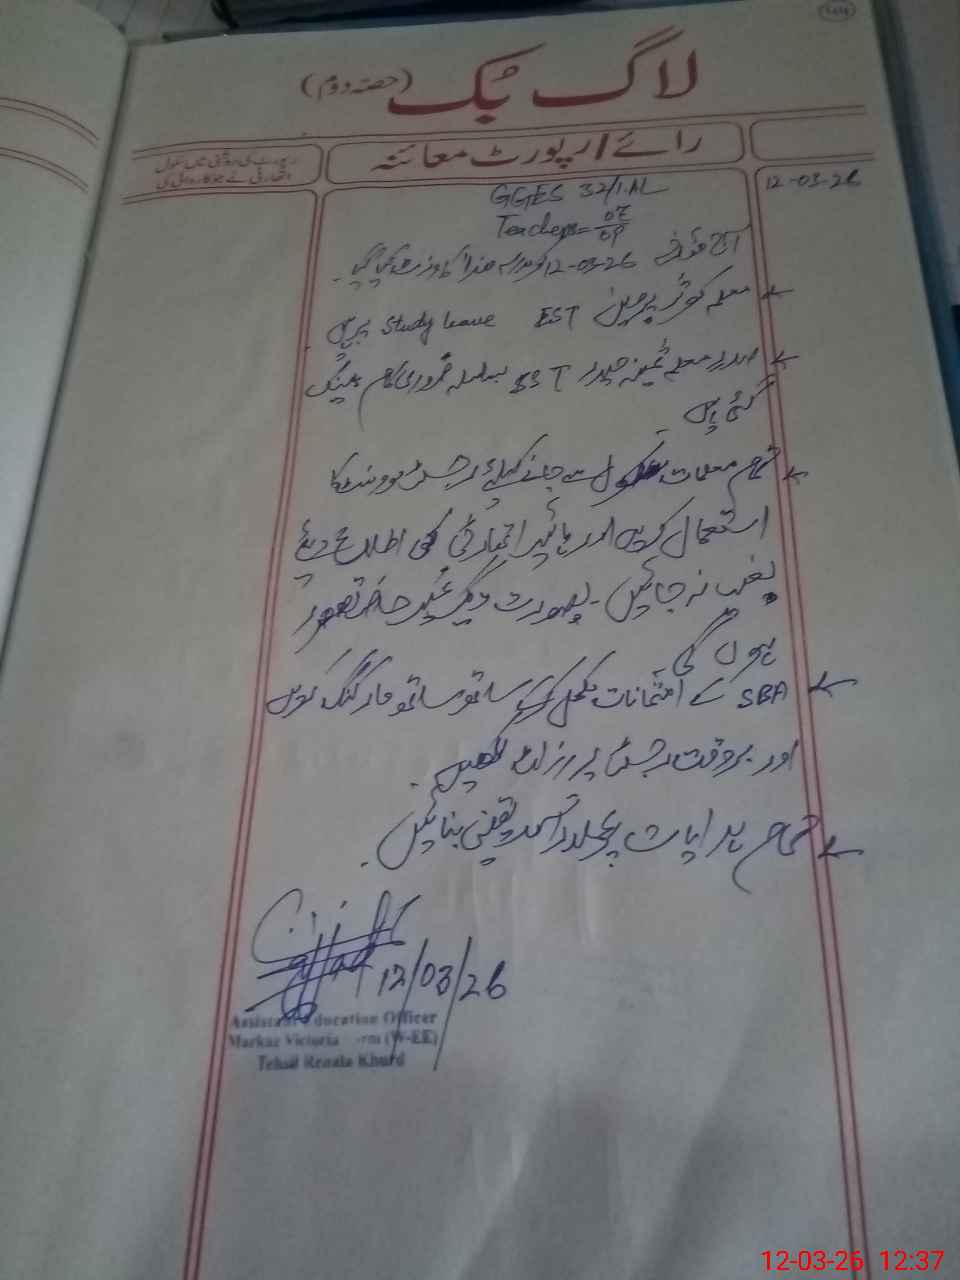 لاگ بک (حصہ دوم)
رائے / رپورٹ معائنہ
رپورٹ کی روشنی میں سکول
اتھارٹی نے جو کاروائی کی
12-03-26
GGES 32/1.AL
Teachers = 07/09
آج مورخہ 12-03-26 کو مدرسہ ھذا کا وزٹ کیا گیا۔
معلمہ کوثر پروین EST Study leave پر ہیں
اور معلمہ ثمینہ حیدر EST بسلسلہ ضروری کام بینک
گئی ہیں
تمام معلمات سکول سے جانے کیلئے رجسٹر موومنٹ کا
استعمال کریں اور ہائیر اتھارٹی کی اطلاع دیئے
بغیر نہ جائیں۔ بصورت دیگر غیر حاضر تصور
ہوں گی
SBA کے امتحانات مکمل کرکے ساتھ ساتھ مارکنگ کریں
اور بروقت رجسٹر پر رزلٹ لکھیں۔
تمام ہدایات پر عملدرآمد یقینی بنائیں۔
12/03/26
Assistant Education Officer
Markaz Victoria (W-EE)
Tehsil Renala Khurd
12-03-26 12:37